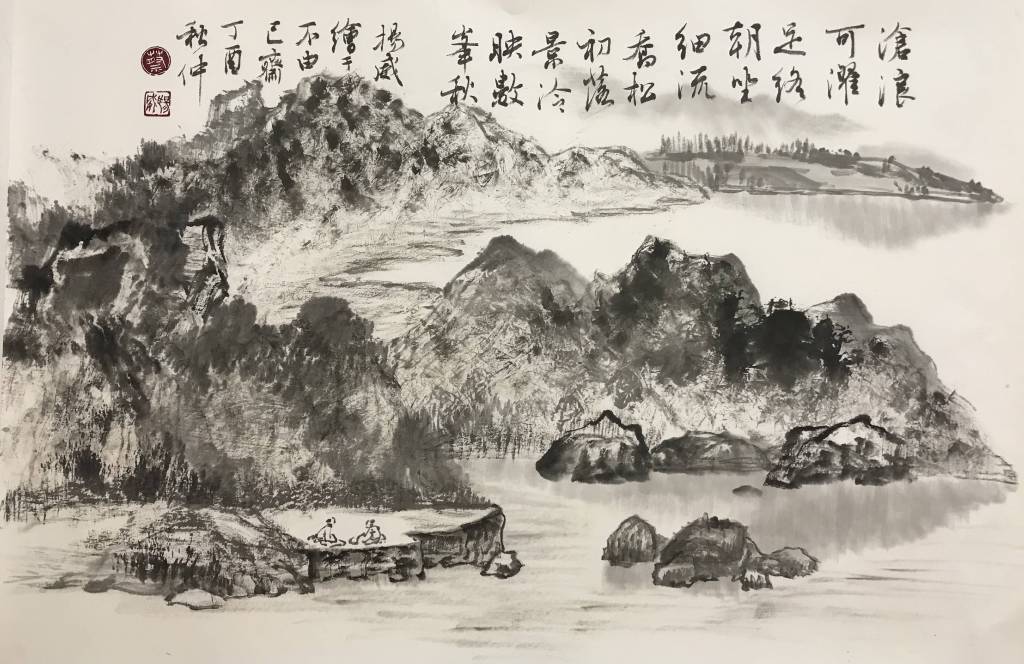 滄浪
可濯
足終
朝坐
細流
喬松
初落
景冷
映數
峯秋
揚威
繪于
不由
己齋
丁酉
秋仲
蔡